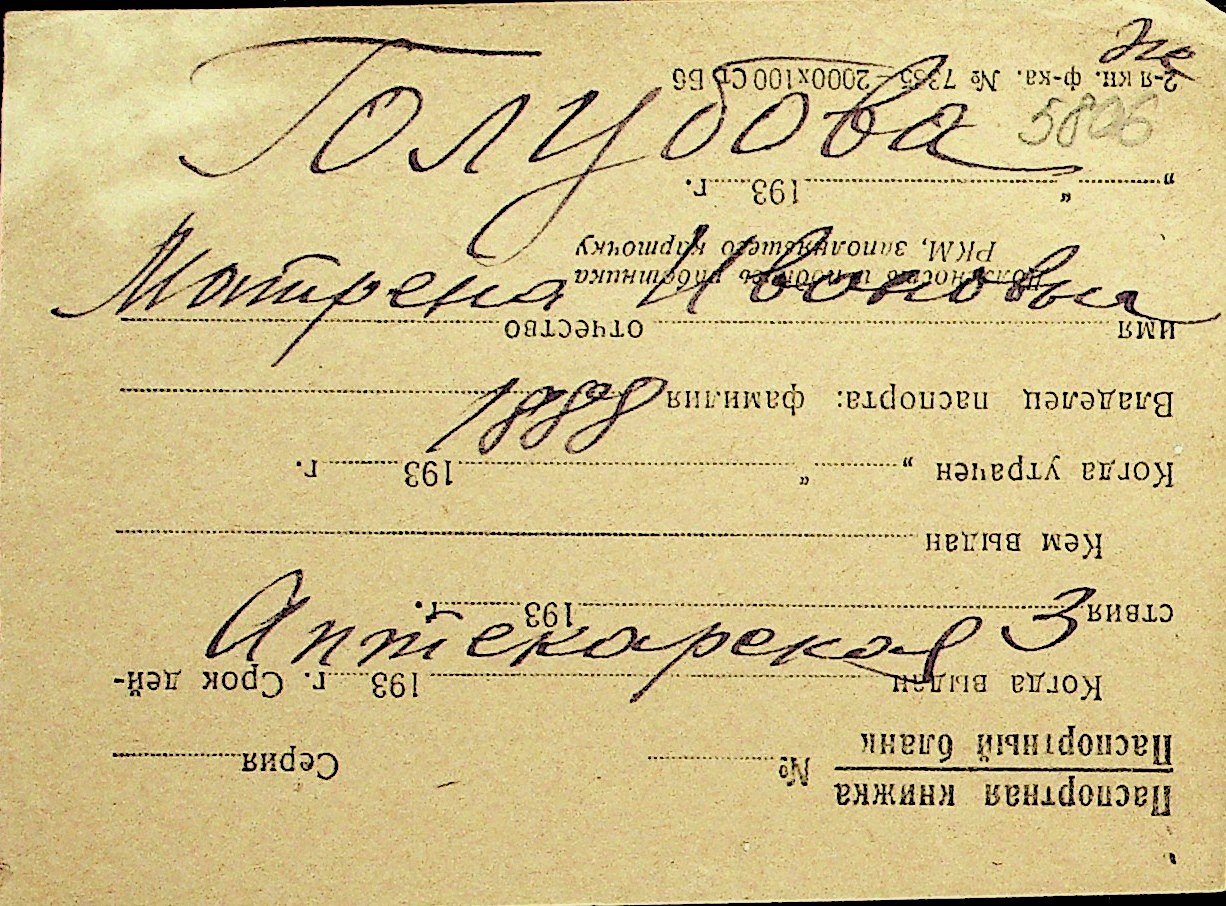 Голубова
5806
Матрена Ивановна
1888
Аптекарская 3
Паспортная книжка
Паспортный бланк
№ Серия
Когда выдан 193 г. Срок дей-
ствия 193 г.
Кем выдан
Когда утрачен „ “ 193 г.
Владелец паспорта: фамилия
имя отчество
Должность и подпись работника
РКМ, заполнявшего карточку
„ “ 193 г.
2-я кн. ф-ка. № 7365 — 2000х100 Ст Б6